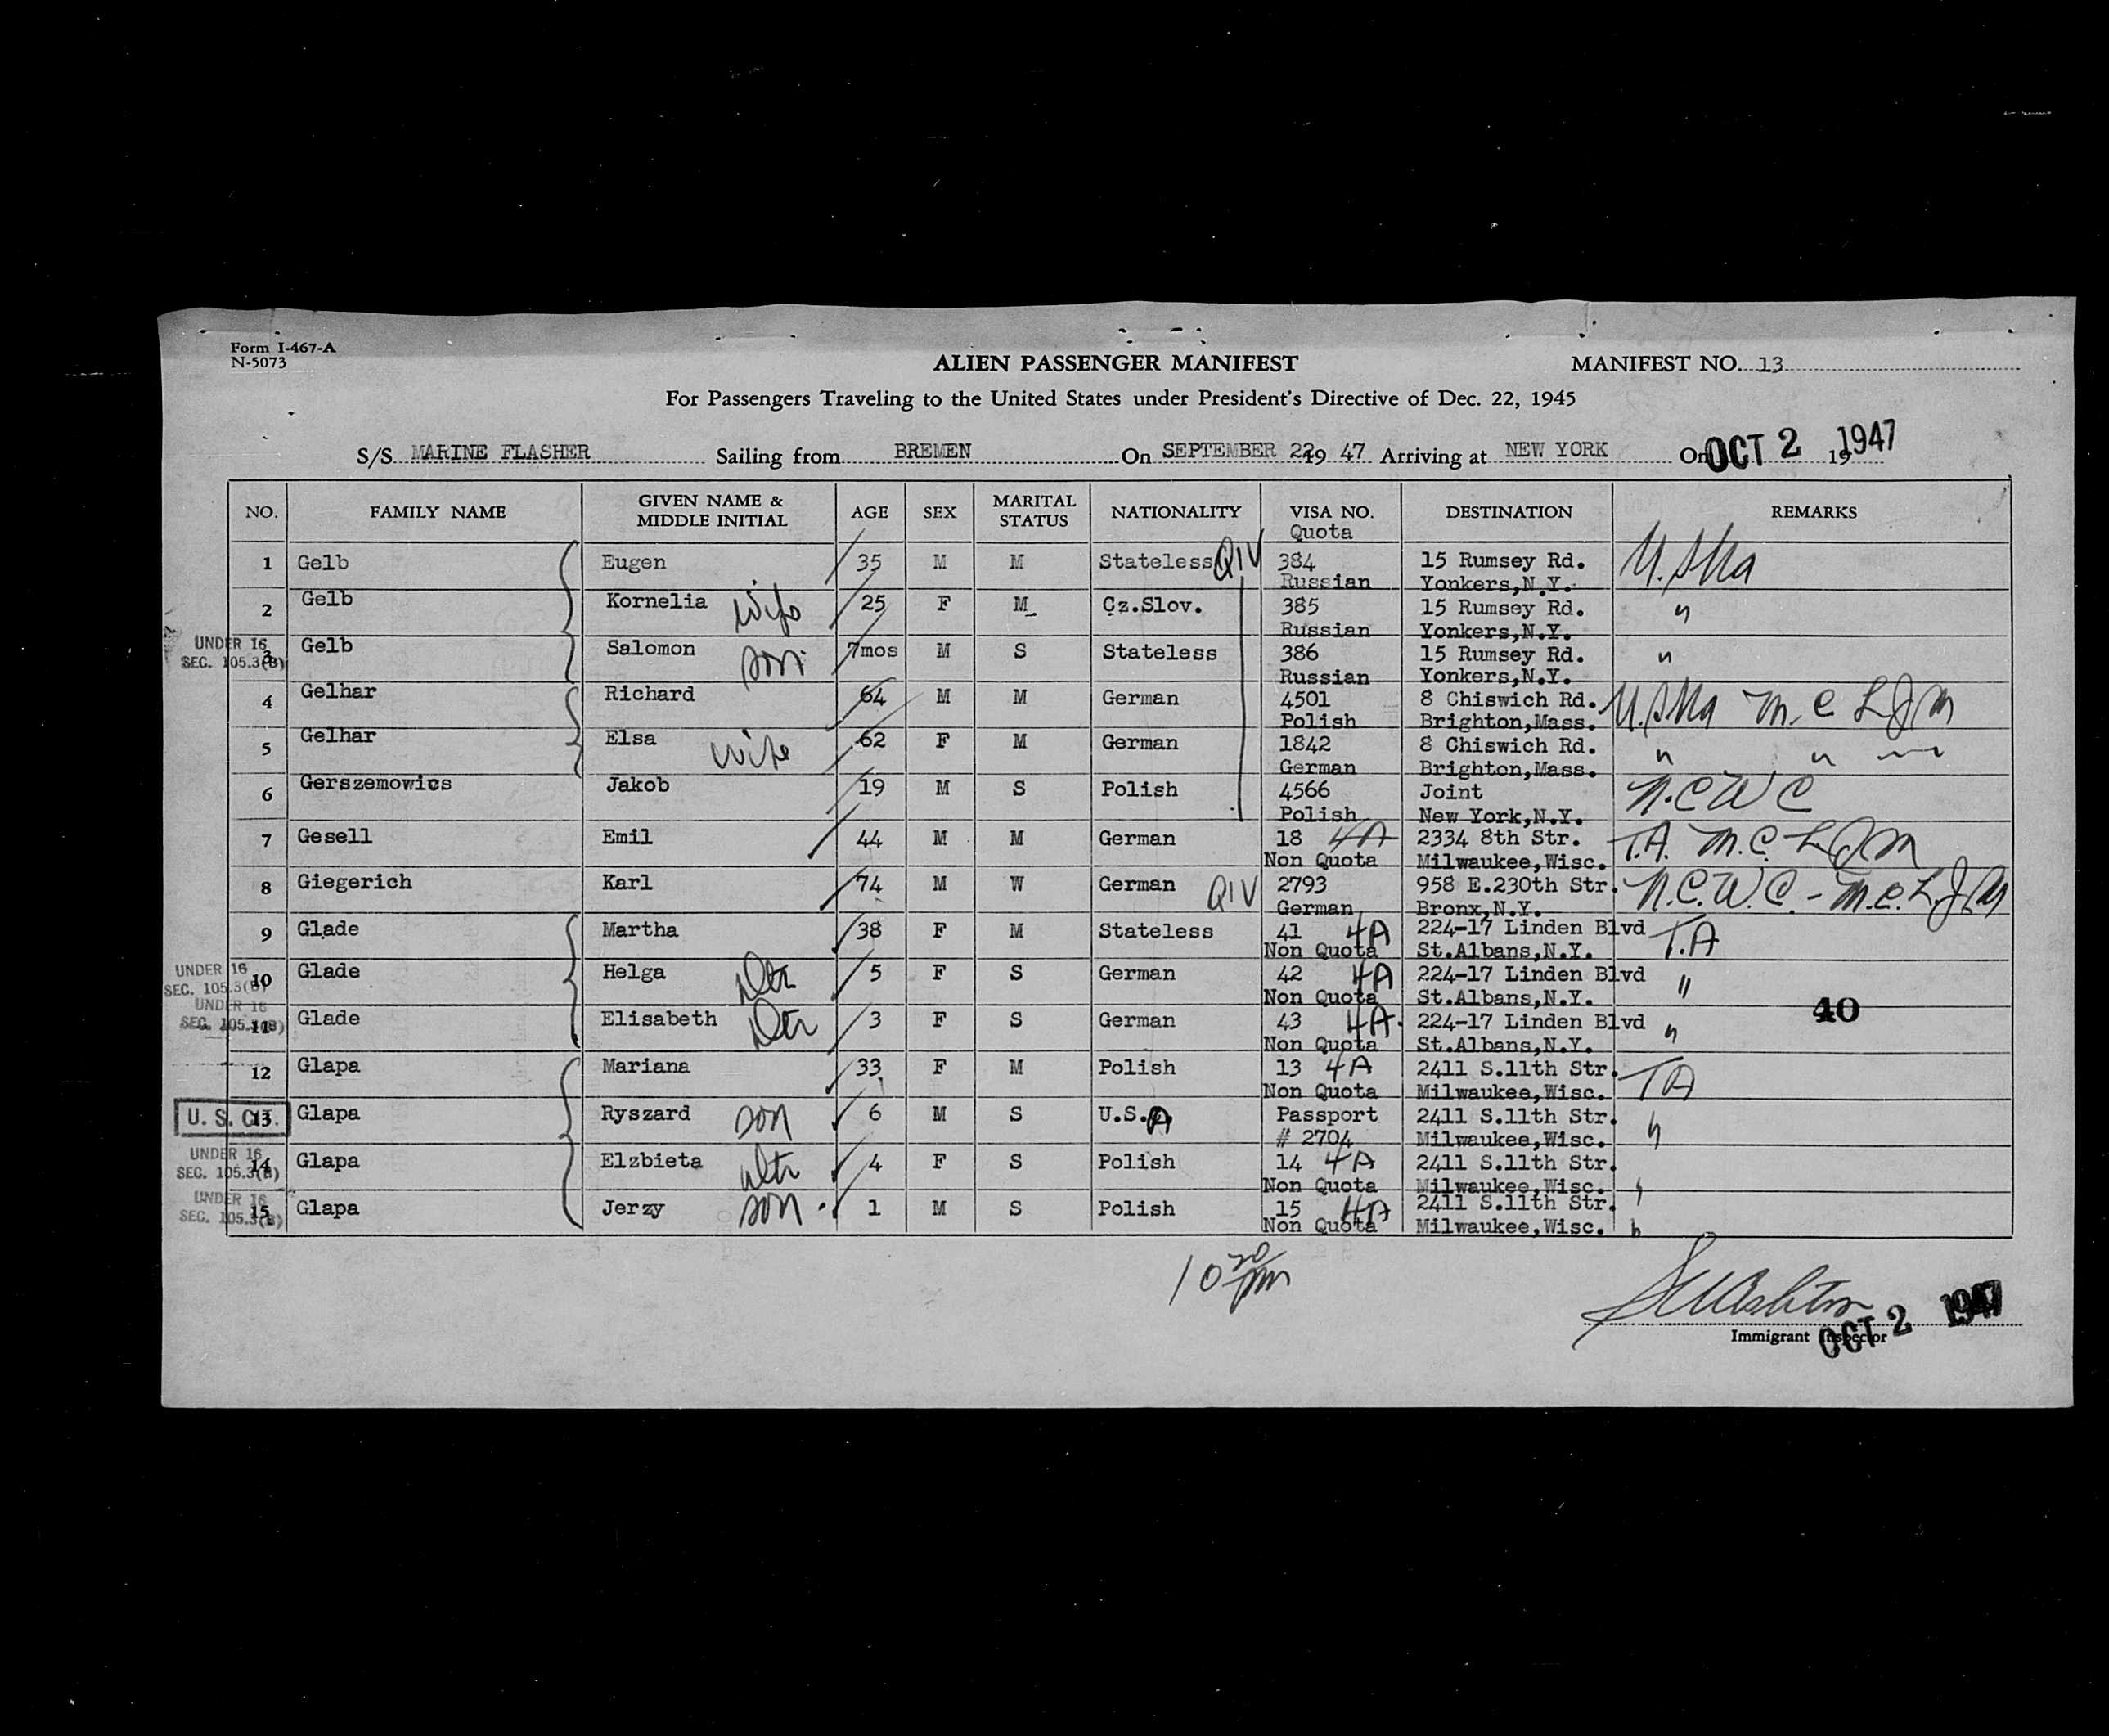 Form I-467-A
N-5073
ALIEN PASSENGER MANIFEST
MANIFEST NO. 13
For Passengers Traveling to the United States under President's Directive of Dec. 22, 1945
S/S MARINE FLASHER Sailing from BREMEN On SEPTEMBER 22 19 47 Arriving at NEW YORK On OCT 2 19 1947
NO. FAMILY NAME GIVEN NAME & MIDDLE INITIAL AGE SEX MARITAL STATUS NATIONALITY VISA NO. Quota DESTINATION REMARKS
1 Gelb Eugen 35 M M Stateless QIV 384 15 Rumsey Rd.
Russian Yonkers,N.Y.
2 Gelb Kornelia wife 25 F M Cz.Slov. 385 15 Rumsey Rd. "
Russian Yonkers,N.Y.
UNDER 16
SEC. 105.3(B)
3 Gelb Salomon son 7mos M S Stateless 386 15 Rumsey Rd. "
Russian Yonkers,N.Y.
4 Gelhar Richard 64 M M German 4501 8 Chiswich Rd.
Polish Brighton,Mass.
5 Gelhar Elsa wife 62 F M German 1842 8 Chiswich Rd. " "
German Brighton,Mass.
6 Gerszemowics Jakob 19 M S Polish 4566 Joint N.C.W.C
Polish New York,N.Y.
7 Gesell Emil 44 M M German 18 4A 2334 8th Str. T.A. M.C. LJM
Non Quota Milwaukee,Wisc.
8 Giegerich Karl 74 M W German QIV 2793 958 E.230th Str. N.C.W.C. - M.C.L.J.M
German Bronx,N.Y.
9 Glade Martha 38 F M Stateless 41 4A 224-17 Linden Blvd T.A
Non Quota St.Albans,N.Y.
UNDER 16
SEC. 105.3(B)
10 Glade Helga Dtr 5 F S German 42 4A 224-17 Linden Blvd "
Non Quota St.Albans,N.Y.
UNDER 16
SEC. 105.3(B)
11 Glade Elisabeth Dtr 3 F S German 43 4A. 224-17 Linden Blvd "
Non Quota St.Albans,N.Y.
40
12 Glapa Mariana 33 F M Polish 13 4A 2411 S.11th Str. TA
Non Quota Milwaukee,Wisc.
U. S. CIT.
13 Glapa Ryszard son 6 M S U.S.A Passport 2411 S.11th Str. "
# 2704 Milwaukee,Wisc.
UNDER 16
SEC. 105.3(B)
14 Glapa Elzbieta dtr 4 F S Polish 14 4A 2411 S.11th Str.
Non Quota Milwaukee,Wisc. "
UNDER 16
SEC. 105.3(B)
15 Glapa Jerzy son 1 M S Polish 15 4A 2411 S.11th Str.
Non Quota Milwaukee,Wisc. "
Immigrant Inspector
OCT 2 1947